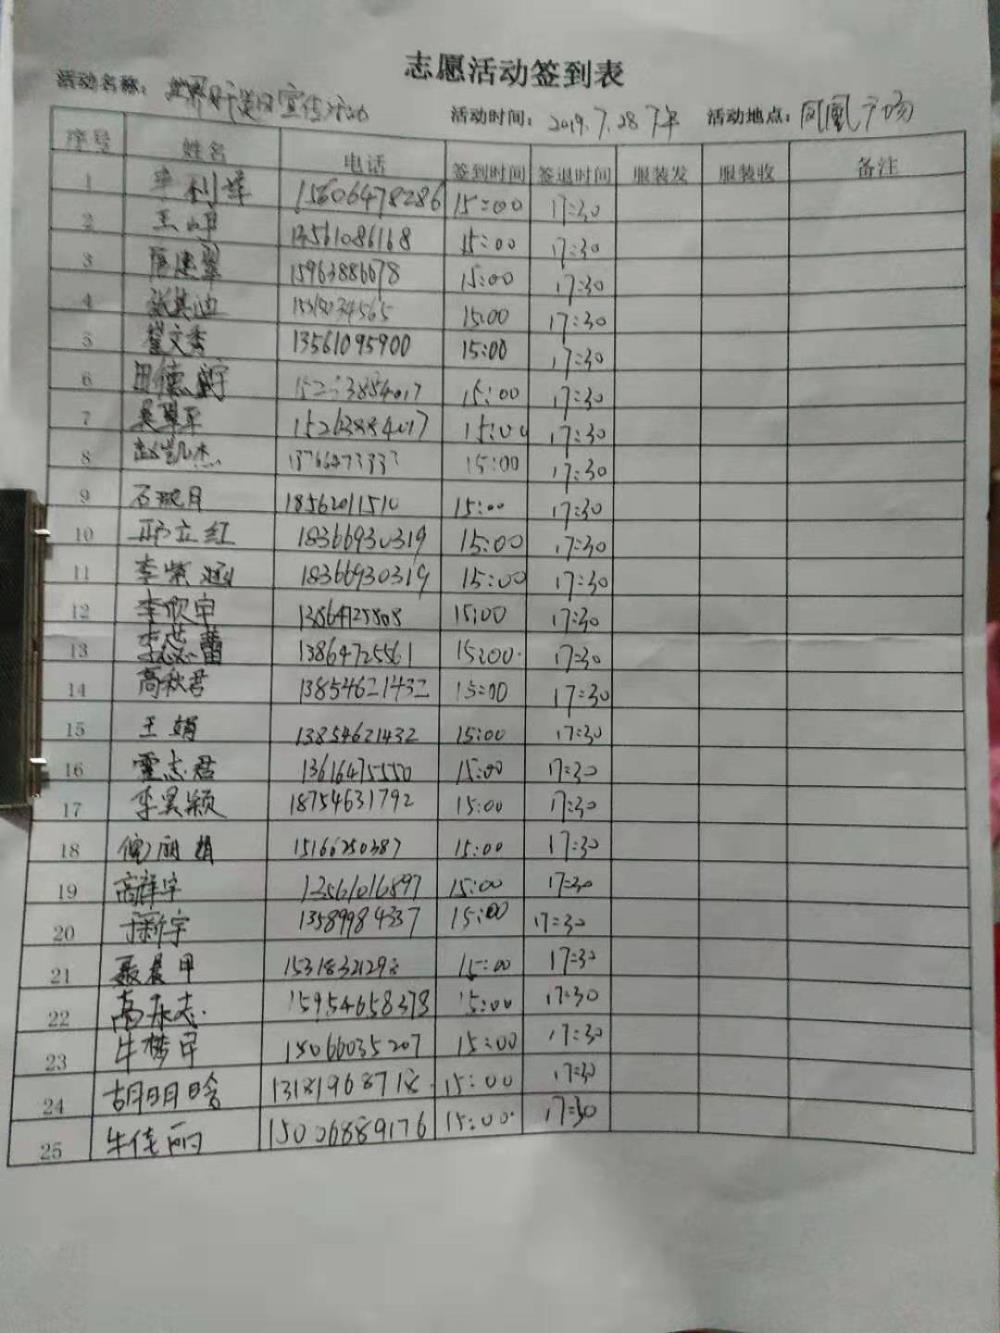 志愿活动签到表
活动名称： 世界肝炎日宣传活动 活动时间： 2019.7.28下午 活动地点： 凤凰广场
序号 姓名 电话 签到时间 签退时间 服装发 服装收 备注
1 15606478286 15:00 17:30
2 王 13561086168 15:00 17:30
3 15963886678 15:00 17:30
4 张其迪 15:00 17:30
5 翟文秀 13561095900 15:00 17:30
6 田德 15:00 17:30
7 吴翠平 15263884017 15:00 17:30
8 赵凯杰 15:00 17:30
9 石 月 18562011510 15:00 17:30
10 邢立红 18366930319 15:00 17:30
11 李紫涵 18366930319 15:00 17:30
12 李欣宇 15:00 17:30
13 李 蕾 13864725561 15:00 17:30
14 高秋君 13854621432 15:00 17:30
15 王娟 13854621432 15:00 17:30
16 霍志君 13616475550 15:00 17:30
17 李昊颖 18754631792 15:00 17:30
18 倪丽娟 15166250387 15:00 17:30
19 高梓宇 13561016897 15:00 17:30
20 于新宇 13589984337 15:00 17:30
21 聂晨甲 15:00 17:30
22 高永志 15954658378 15:00 17:30
23 牛梦 15066035207 15:00 17:30
24 胡明晗 15:00 17:30
25 牛佳丽 15006889176 15:00 17:30